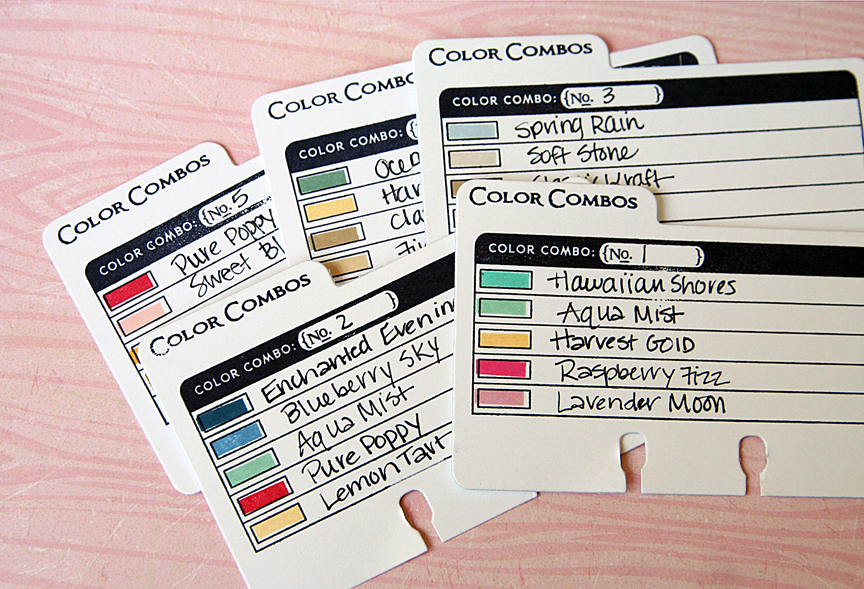 COLOR COMBOS
COLOR COMBO: {No. 3}
Spring Rain
Soft Stone
Classic Kraft
COLOR COMBOS
COLOR COMBO:
COLOR COMBOS
COLOR COMBO: {No. 5
Pure Poppy
Sweet
COLOR COMBOS
COLOR COMBO: {No. 2}
Enchanted Evening
Blueberry Sky
Aqua Mist
Pure Poppy
Lemon Tart
COLOR COMBOS
COLOR COMBO: {No. 1}
Hawaiian Shores
Aqua Mist
Harvest Gold
Raspberry Fizz
Lavender Moon